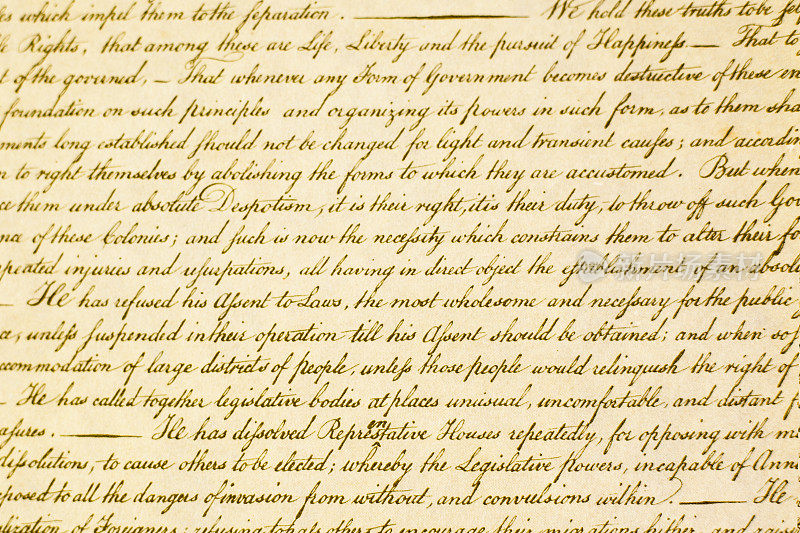 es which impel them to the separation. ——— We hold these truths to be sel
le Rights, that among these are Life, Liberty and the pursuit of Happineſs. — That to
t of the governed, — That whenever any Form of Government becomes destructive of these en
foundation on such principles and organizing its powers in such form, as to them sha
ments long established ſhould not be changed for light and transient cauſes; and accordin
n to right themselves by abolishing the forms to which they are accustomed. But when
ce them under absolute Despotism, it is their right, it is their duty, to throw off such Gov
nce of these Colonies; and ſuch is now the neceſsity which constrains them to alter their fo
epeated injuries and uſurpations, all having in direct object the eſtablishment of an absolu
— He has refused his Aſsent to Laws, the most wholesome and neceſsary for the public g
ce, unleſs ſuspended in their operation till his Aſsent should be obtained; and when so ſ
ccommodation of large districts of people, unleſs those people would relinquish the right of
— He has called together legislative bodies at places unusual, uncomfortable, and distant f
eaſures. ——— He has diſsolved Representative Houses repeatedly, for opposing with m
diſsolutions, to cause others to be elected; whereby the Legislative powers, incapable of Ann
xposed to all the dangers of invasion from without, and convulsions within. ——— He
alization of Foreigners; refusing to pass others to encourage their migrations hither, and raisin